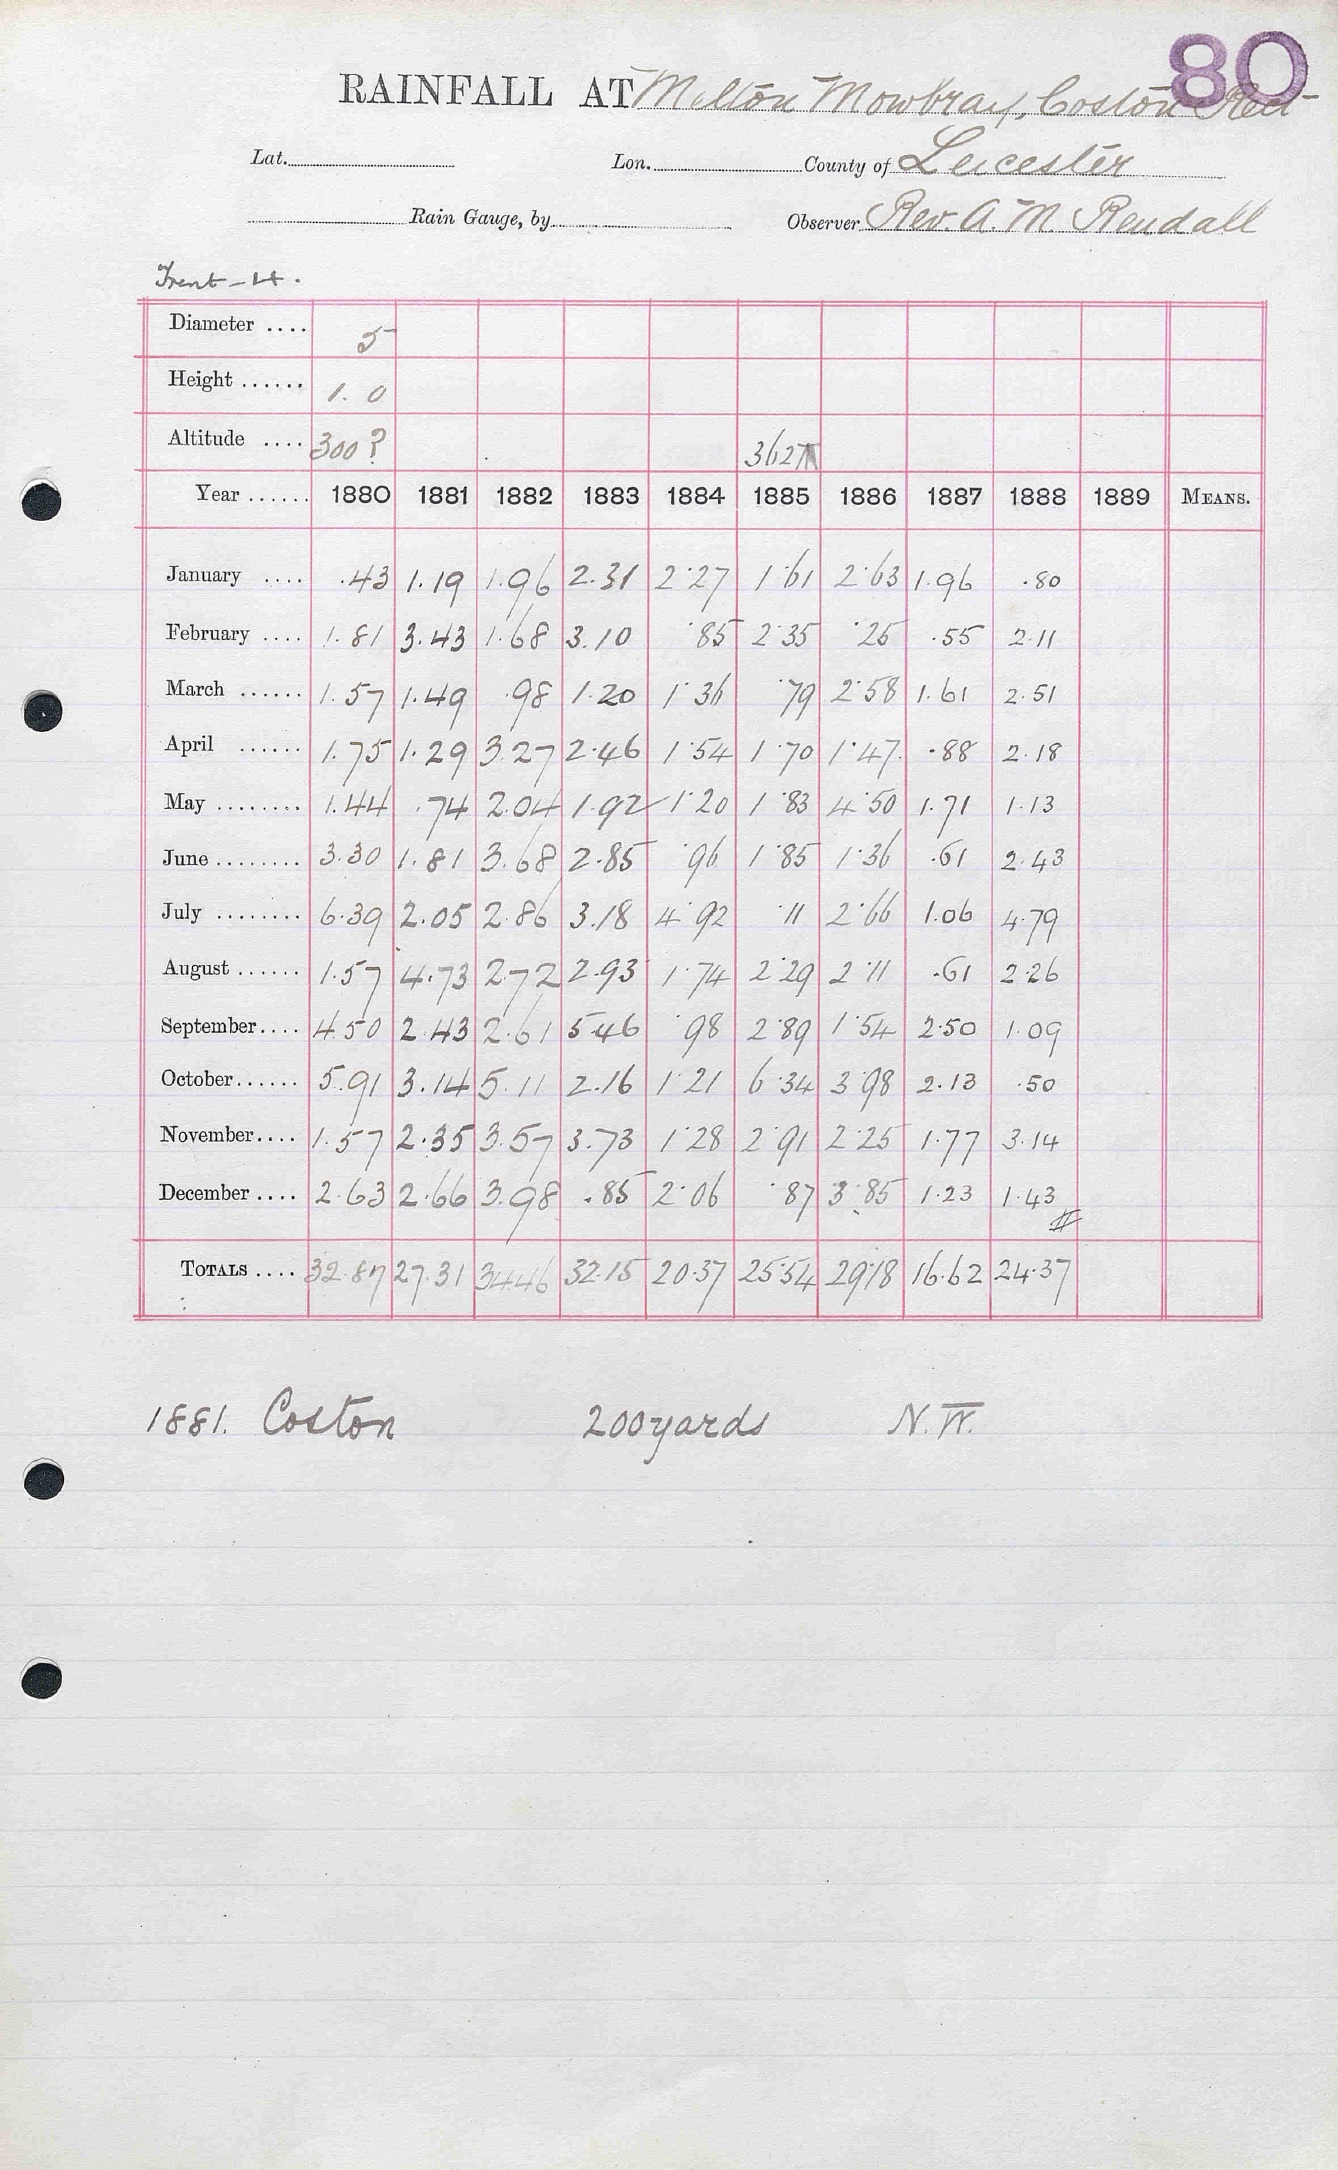 80
RAINFALL AT Melton Mowbray, Coston Rect
Lat. Lon. County of Leicester
Rain Gauge, by Observer Rev. A. M. Rendall
Trent - 4.
Diameter .... 5
Height ...... 1. 0
Altitude .... 300? 362
Year ...... 1880 1881 1882 1883 1884 1885 1886 1887 1888 1889 MEANS.
January .... .43 1.19 1.96 2.31 2.27 1.61 2.63 1.96 .80
February .... 1.81 3.43 1.68 3.10 .85 2.35 .25 .55 2.11
March ...... 1.57 1.49 .98 1.20 1.36 .79 2.58 1.61 2.51
April ...... 1.75 1.29 3.27 2.46 1.54 1.70 1.47 .88 2.18
May ........ 1.44 .74 2.04 1.92 1.20 1.83 4.50 1.71 1.13
June ........ 3.30 1.81 3.68 2.85 .96 1.85 1.36 .61 2.43
July ........ 6.39 2.05 2.86 3.18 4.92 .11 2.66 1.06 4.79
August ...... 1.57 4.73 2.72 2.93 1.74 2.29 2.11 .61 2.26
September .... 4.50 2.43 2.61 5.46 .98 2.89 1.54 2.50 1.09
October ...... 5.91 3.14 5.11 2.16 1.21 6.34 3.98 2.13 .50
November .... 1.57 2.35 3.57 3.73 1.28 2.91 2.25 1.77 3.14
December .... 2.63 2.66 3.98 .85 2.06 .87 3.85 1.23 1.43
TOTALS .... 32.87 27.31 34.46 32.15 20.37 25.54 29.18 16.62 24.37
1881. Coston 200 yards N.W.